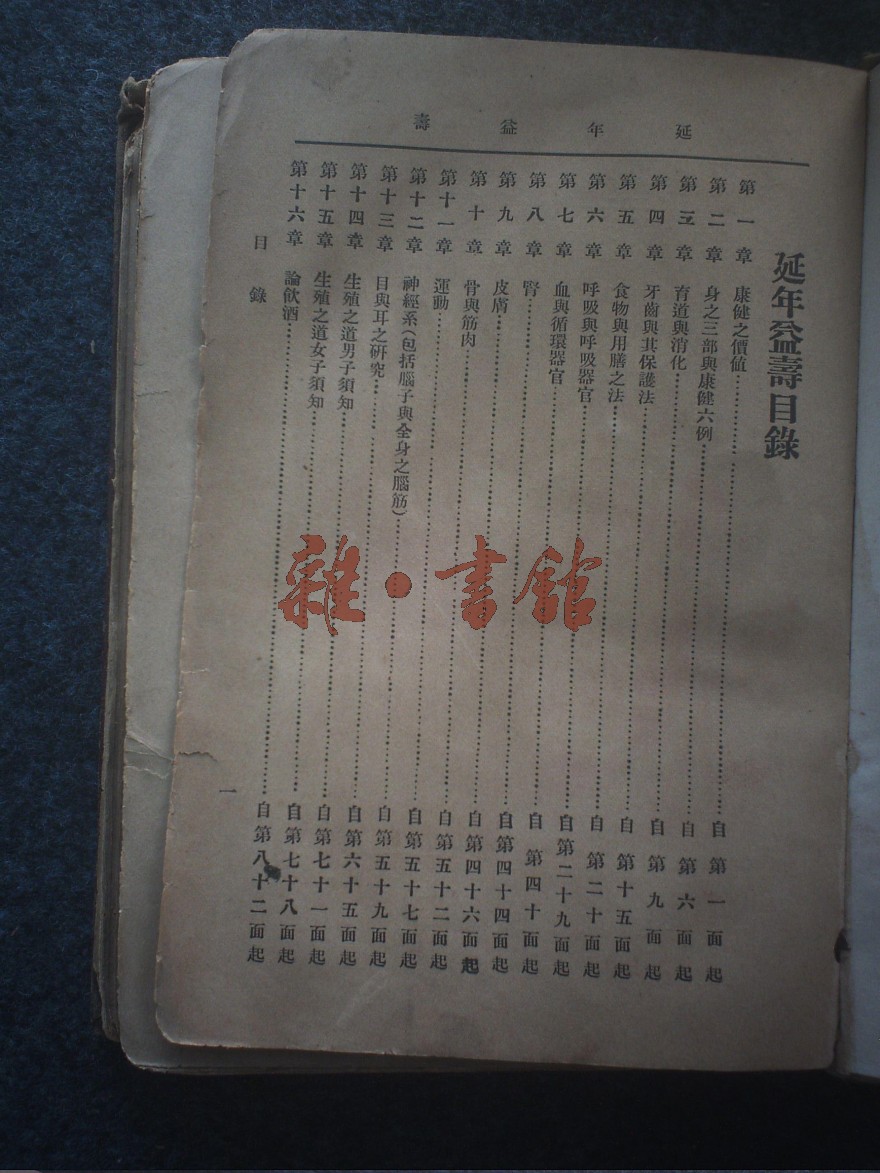 延年益壽
延年益壽目錄
第一章 康健之價值……自第一面起
第二章 身之三部與康健六例……自第六面起
第三章 育道與消化……自第九面起
第四章 牙齒與其保護法……自第十五面起
第五章 食物與用膳之法……自第二十面起
第六章 呼吸與呼吸器官……自第二十九面起
第七章 血與循環器官……自第四十面起
第八章 腎……自第四十四面起
第九章 皮膚……自第四十六面起
第十章 骨與筋肉……自第五十二面起
第十一章 運動……自第五十七面起
第十二章 神經系(包括腦子與全身之腦筋)……自第五十九面起
第十三章 目與耳之研究……自第六十五面起
第十四章 生殖之道男子須知……自第七十一面起
第十五章 生殖之道女子須知……自第七十八面起
第十六章 論飲酒……自第八十二面起
目錄
一
雜·書館